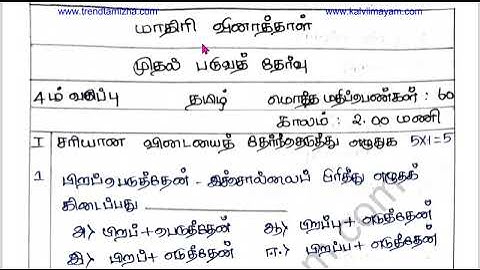 www.trendtamizha.com www.kalviimayam.com
மாதிரி வினாத்தாள்
முதல் பருவத் தேர்வு
4 ம் வகுப்பு தமிழ் மொத்த மதிப்பெண்கள் : 60
காலம் : 2.00 மணி
I சரியான விடையைத் தேர்ந்தெடுத்து எழுதுக 5x1=5
1 பிறப்பெடுத்தேன் - இச்சொல்லைப் பிரித்து எழுதக்
கிடைப்பது
அ) பிறப்+பெடுத்தேன் ஆ) பிறப்பு+எடுத்தேன்
இ) பிறப்+எடுத்தேன் ஈ) பிறப்ப+எடுத்தேன்